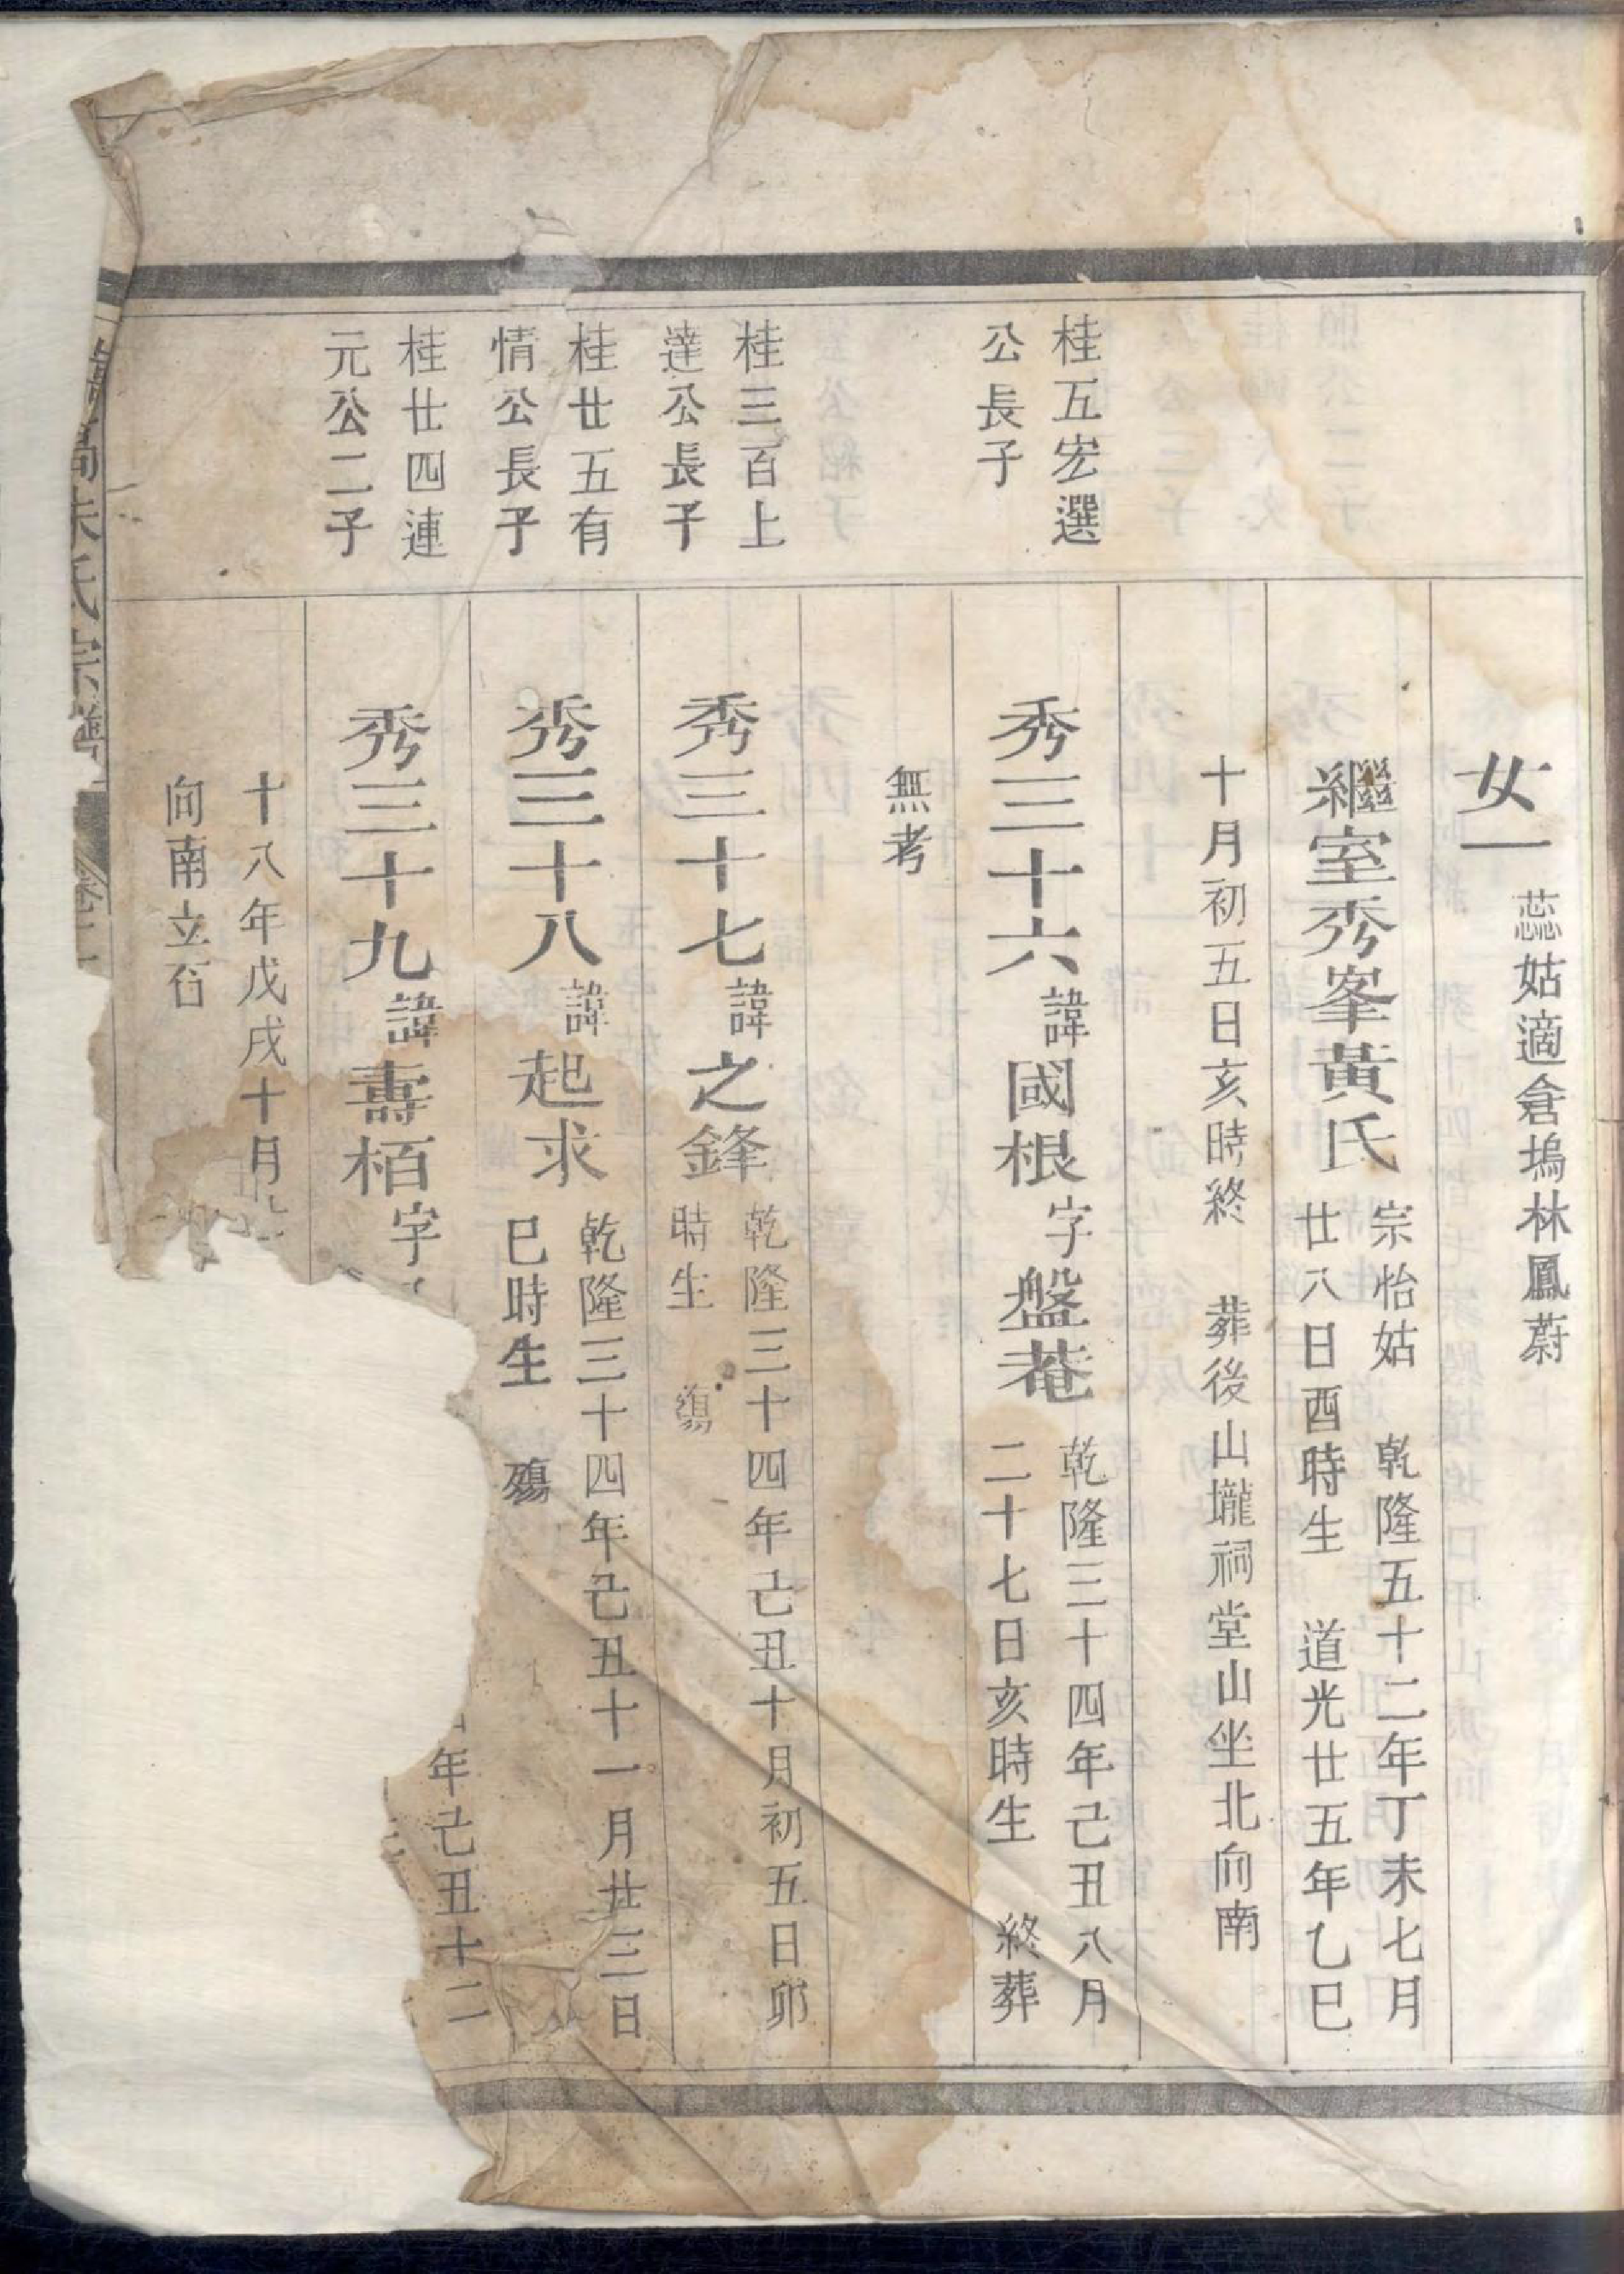 女一
蕊姑適倉塢林鳳蔚
繼室秀峯黃氏
宗怡姑 乾隆五十二年丁未七月
廿八日酉時生 道光廿五年乙巳
十月初五日亥時終 葬後山壠祠堂山坐北向南
桂五宏選
公長子
秀三十六諱國根字盤菴
乾隆三十四年己丑八月
二十七日亥時生 終葬
無考
桂三百上
達公長子
秀三十七諱之鋒
乾隆三十四年己丑十月初五日卯
時生 殤
桂廿五有
情公長子
秀三十八諱起求
乾隆三十四年己丑十一月廿三日
巳時生 殤
桂廿四連
元公二子
秀三十九諱壽栢字
年己丑十二
十八年戊戌十月
向南立石
朱氏宗譜